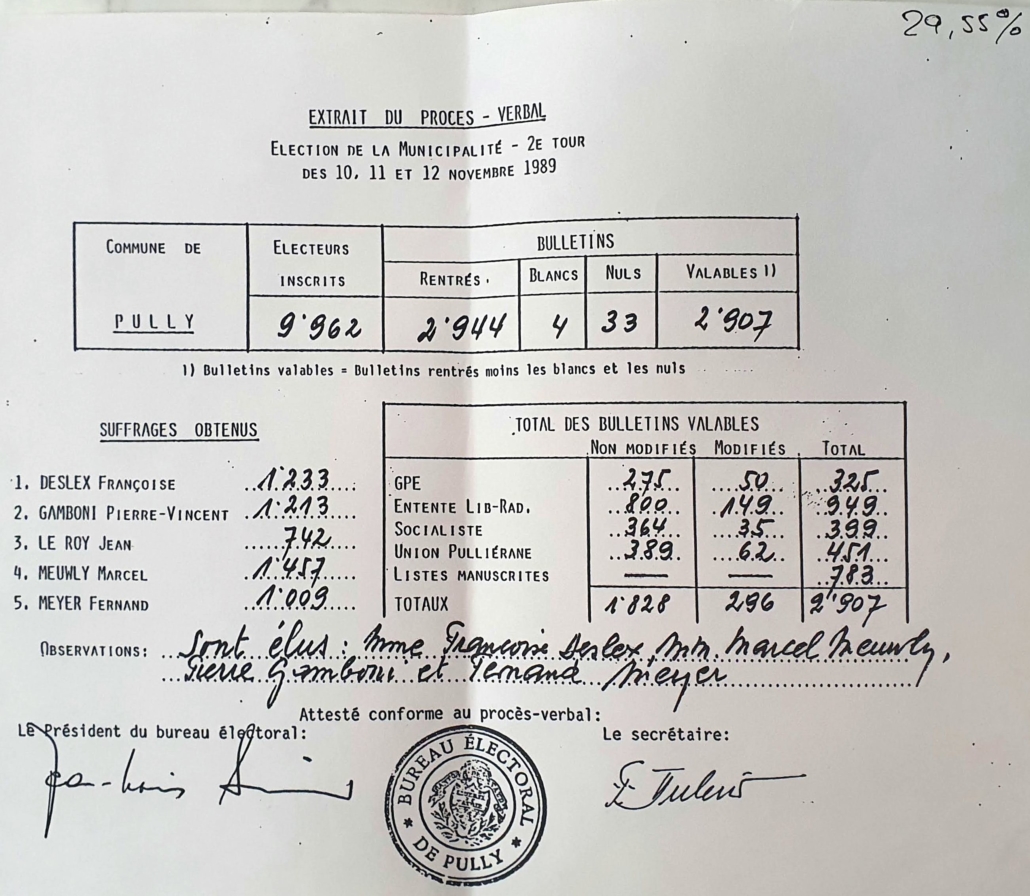 29,55%
EXTRAIT DU PROCES - VERBAL
ELECTION DE LA MUNICIPALITÉ - 2E TOUR
DES 10, 11 ET 12 NOVEMBRE 1989
COMMUNE DE PULLY
ELECTEURS INSCRITS
BULLETINS
RENTRÉS. BLANCS NULS VALABLES 1)
9'962 2'944 4 33 2'907
1) Bulletins valables = Bulletins rentrés moins les blancs et les nuls
SUFFRAGES OBTENUS
1. DESLEX FRANÇOISE 1'233
2. GAMBONI PIERRE-VINCENT 1'213
3. LE ROY JEAN 742
4. MEUWLY MARCEL 1'457
5. MEYER FERNAND 1'009
TOTAL DES BULLETINS VALABLES
NON MODIFIÉS MODIFIÉS TOTAL
GPE 275 50 325
ENTENTE LIB-RAD. 800 149 949
SOCIALISTE 364 35 399
UNION PULLIÉRANE 389 62 451
LISTES MANUSCRITES — — 783
TOTAUX 1'828 296 2'907
OBSERVATIONS: Sont élus : Mme Françoise Deslex, MM. Marcel Meuwly,
Pierre Gamboni et Fernand Meyer
Attesté conforme au procès-verbal:
Le Président du bureau électoral:
Le secrétaire:
BUREAU ÉLECTORAL
* DE PULLY *